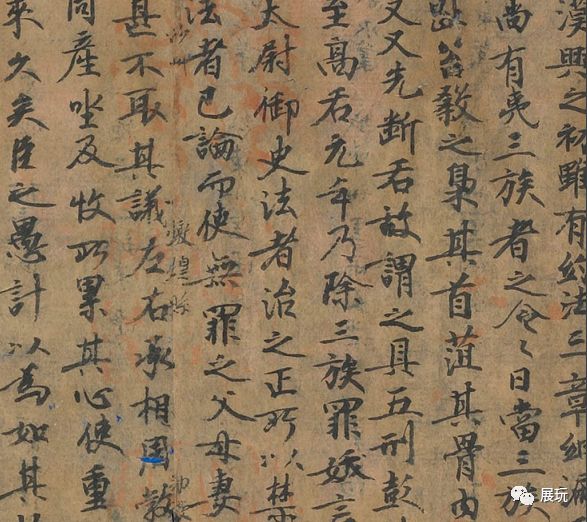 漢興之初雖有約法三章網
尚有夷三族者之令〻曰當三族
趾笞殺之梟其首菹其骨肉
又又先斷舌故謂之具五刑彭
至高后元年乃除三族罪妖言
太尉御史法者治之正所以禁
法者已論而使無罪之父母妻
甚不取其議左右承相周勃
同產坐及收所累其心使重
來久矣臣之愚計以為如其
展玩